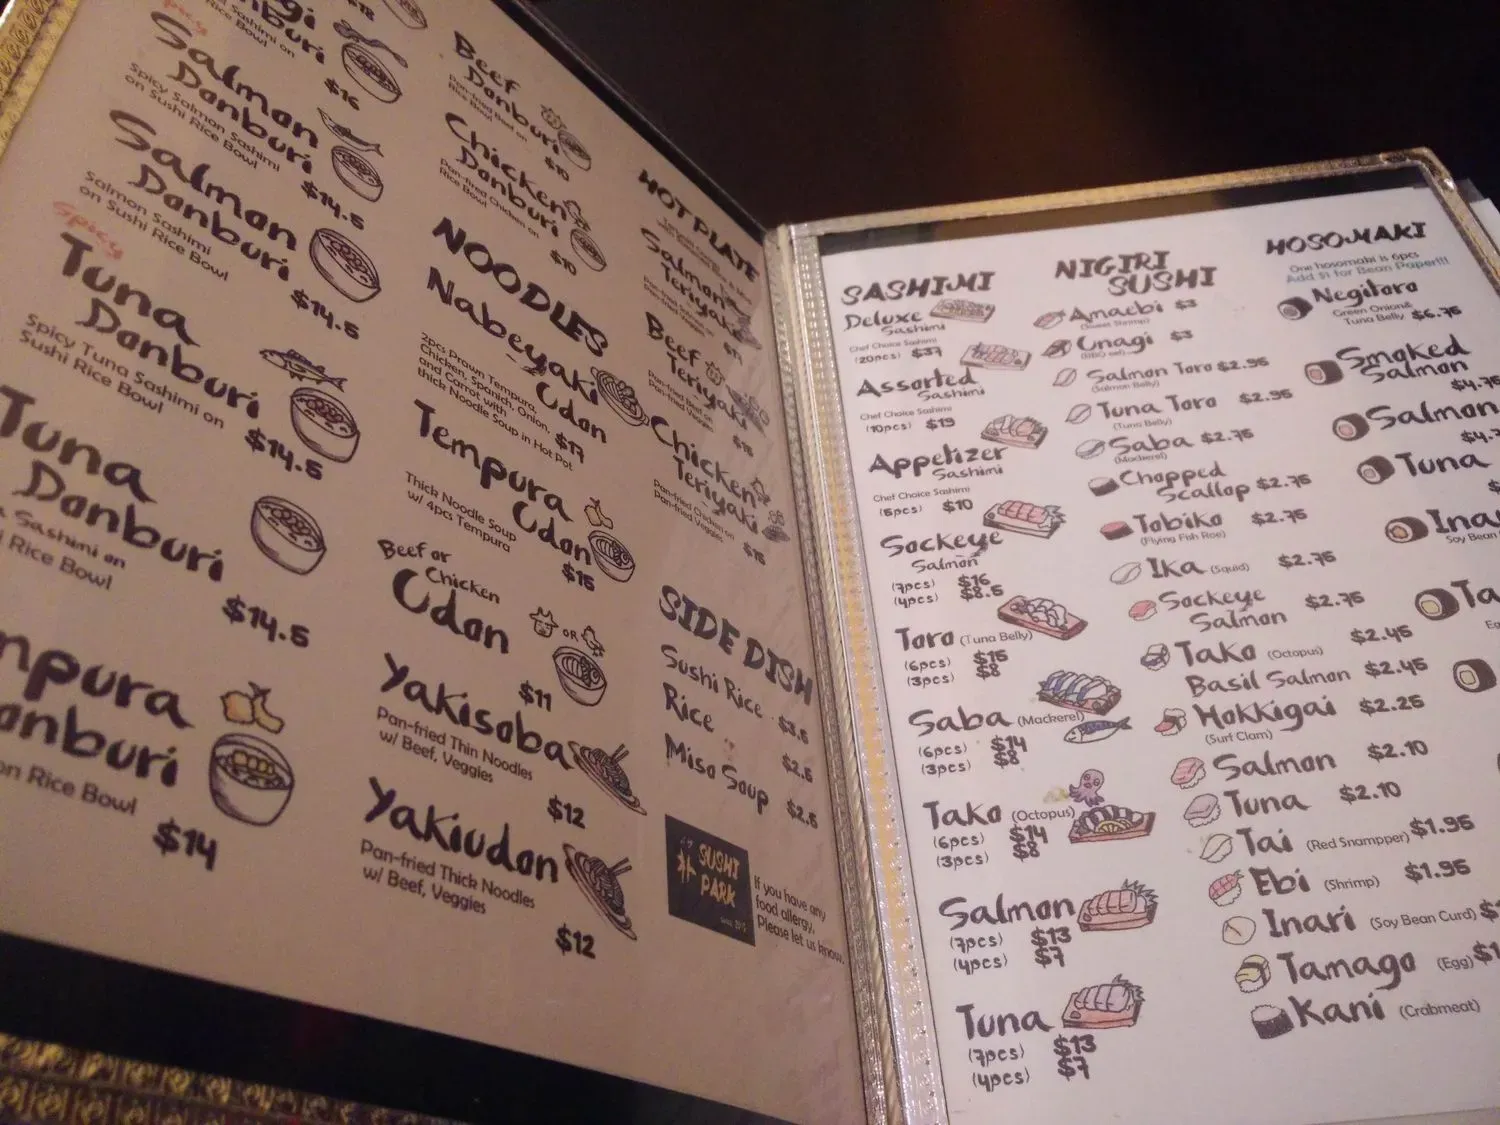 $18
Sashimi on
Rice Bowl
$16
Spicy
Salmon
Danburi
Spicy Salmon Sashimi
on Sushi Rice Bowl
$14.5
Salmon
Danburi
Salmon Sashimi
on Sushi Rice Bowl
$14.5
Spicy
Tuna
Danburi
Spicy Tuna Sashimi on
Sushi Rice Bowl
$14.5
Tuna
Danburi
Sashimi on
Rice Bowl
$14.5
Rice Bowl
$14
Beef
Danburi
Pan-fried Beef on
Rice Bowl
$10
Chicken
Danburi
Pan-fired Chicken on
Rice Bowl
$10
NOODLES
Nabeyaki
Udon
2pcs Prawn Tempura,
Chicken, Spanish, Onion,
and Carrot with
thick Noodle Soup in Hot Pot
$17
Tempura
Udon
Thick Noodle Soup
w/ 4pcs Tempura
$15
Beef or
Chicken
Udon
OR
$11
Yakisoba
Pan-fried Thin Noodles
w/ Beef, Veggies
$12
Yakiudon
Pan-fried Thick Noodles
w/ Beef, Veggies
$12
HOT PLATE
Salmon
Teriyaki
Beef
Teriyaki
Pan-fried Beef on
Pan-fried Veggies
$15
Chicken
Teriyaki
Pan-fried Chicken on
Pan-fried Veggies
$15
SIDE DISH
Sushi Rice $3.5
Rice $2.5
Miso Soup $2.5
SUSHI
PARK
If you have any
food allergy,
Please let us know.
SASHIMI
Deluxe
Sashimi
Chef Choice Sashimi
(20pcs) $37
Assorted
Sashimi
Chef Choice Sashimi
(10pcs) $19
Appetizer
Sashimi
Chef Choice Sashimi
(5pcs) $10
Sockeye
Salmon
(7pcs) $16
(4pcs) $8.5
Toro (Tuna Belly)
(6pcs) $15
(3pcs) $8
Saba (Mackerel)
(6pcs) $14
(3pcs) $8
Tako (Octopus)
(6pcs) $14
(3pcs) $8
Salmon
(7pcs) $13
(4pcs) $7
Tuna
(7pcs) $13
(4pcs) $7
NIGIRI
SUSHI
Amaebi $3
(Sweet Shrimp)
Unagi $3
(BBQ eel)
Salmon Toro $2.95
(Salmon Belly)
Tuna Toro $2.95
(Tuna Belly)
Saba $2.75
(Mackerel)
Chopped
Scallop $2.75
Tobiko $2.75
(Flying Fish Roe)
Ika (Squid) $2.75
Sockeye
Salmon $2.75
Tako (Octopus) $2.45
Basil Salmon $2.45
Hokkigai $2.25
(Surf Clam)
Salmon $2.10
Tuna $2.10
Tai (Red Snampper) $1.95
Ebi (Shrimp) $1.95
Inari (Soy Bean Curd)
Tamago (Egg)
Kani (Crabmeat)
HOSOMAKI
One hosomaki is 6pcs
Add $1 for Bean Paper!!!
Negitoro
Green Onion&
Tuna Belly $6.75
Smoked
Salmon
$4.75
Salmon
Tuna
Soy Bean